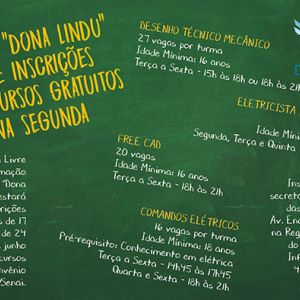 "DONA LINDU"
E INSCRIÇÕES
CURSOS GRATUITOS
NA SEGUNDA
Livre
mação
Dona
estará
rições
de 17
24
junho
cursos
nvênio
Senai.
DESENHO TÉCNICO MECÂNICO
27 vagas por turma
Idade Mínima: 16 anos
Terça a Sexta - 15h às 18h ou 18h às 21h
FREE CAD
20 vagas
Idade Mínima: 16 anos
Terça a Sexta - 18h às 21h
COMANDOS ELÉTRICOS
16 vagas por turma
Idade Mínima: 18 anos
Pré-requisito: Conhecimento em elétrica
Terça a Sexta - 14h45 às 17h45
Quarta e Sexta - 18h às 21h
ELETRICISTA
Idade Míni
Segunda, Terça e Quinta
Ins
secreto
das
Av. Eng
na Reg
do
Inf
4